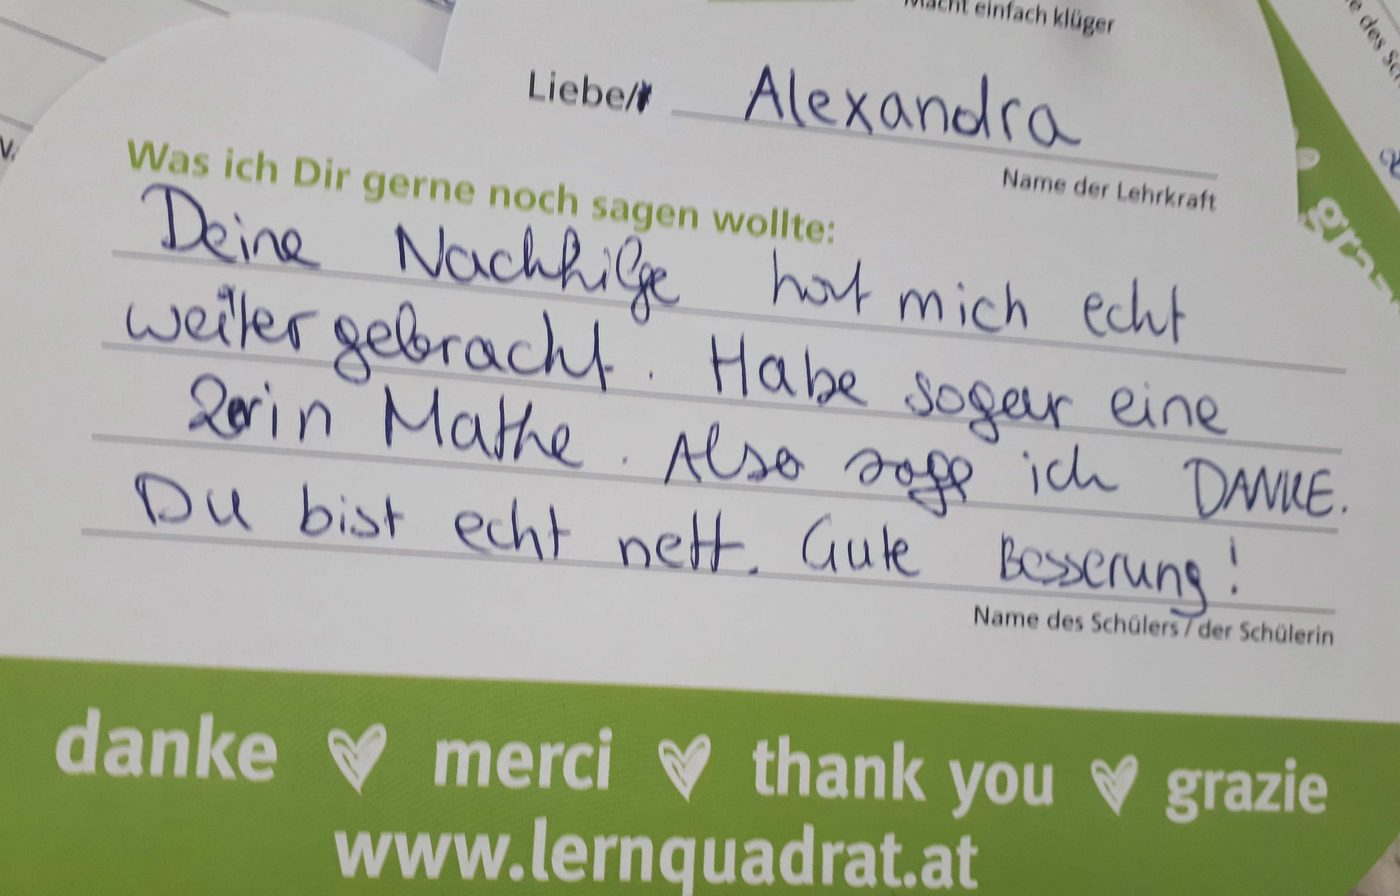 Macht einfach klüger
Liebe/r Alexandra
Name der Lehrkraft
Was ich Dir gerne noch sagen wollte:
Deine Nachhilfe hat mich echt
weitergebracht. Habe sogar eine
2er in Mathe. Also sage ich DANKE.
Du bist echt nett. Gute Besserung!
Name des Schülers / der Schülerin
danke merci thank you grazie
www.lernquadrat.at